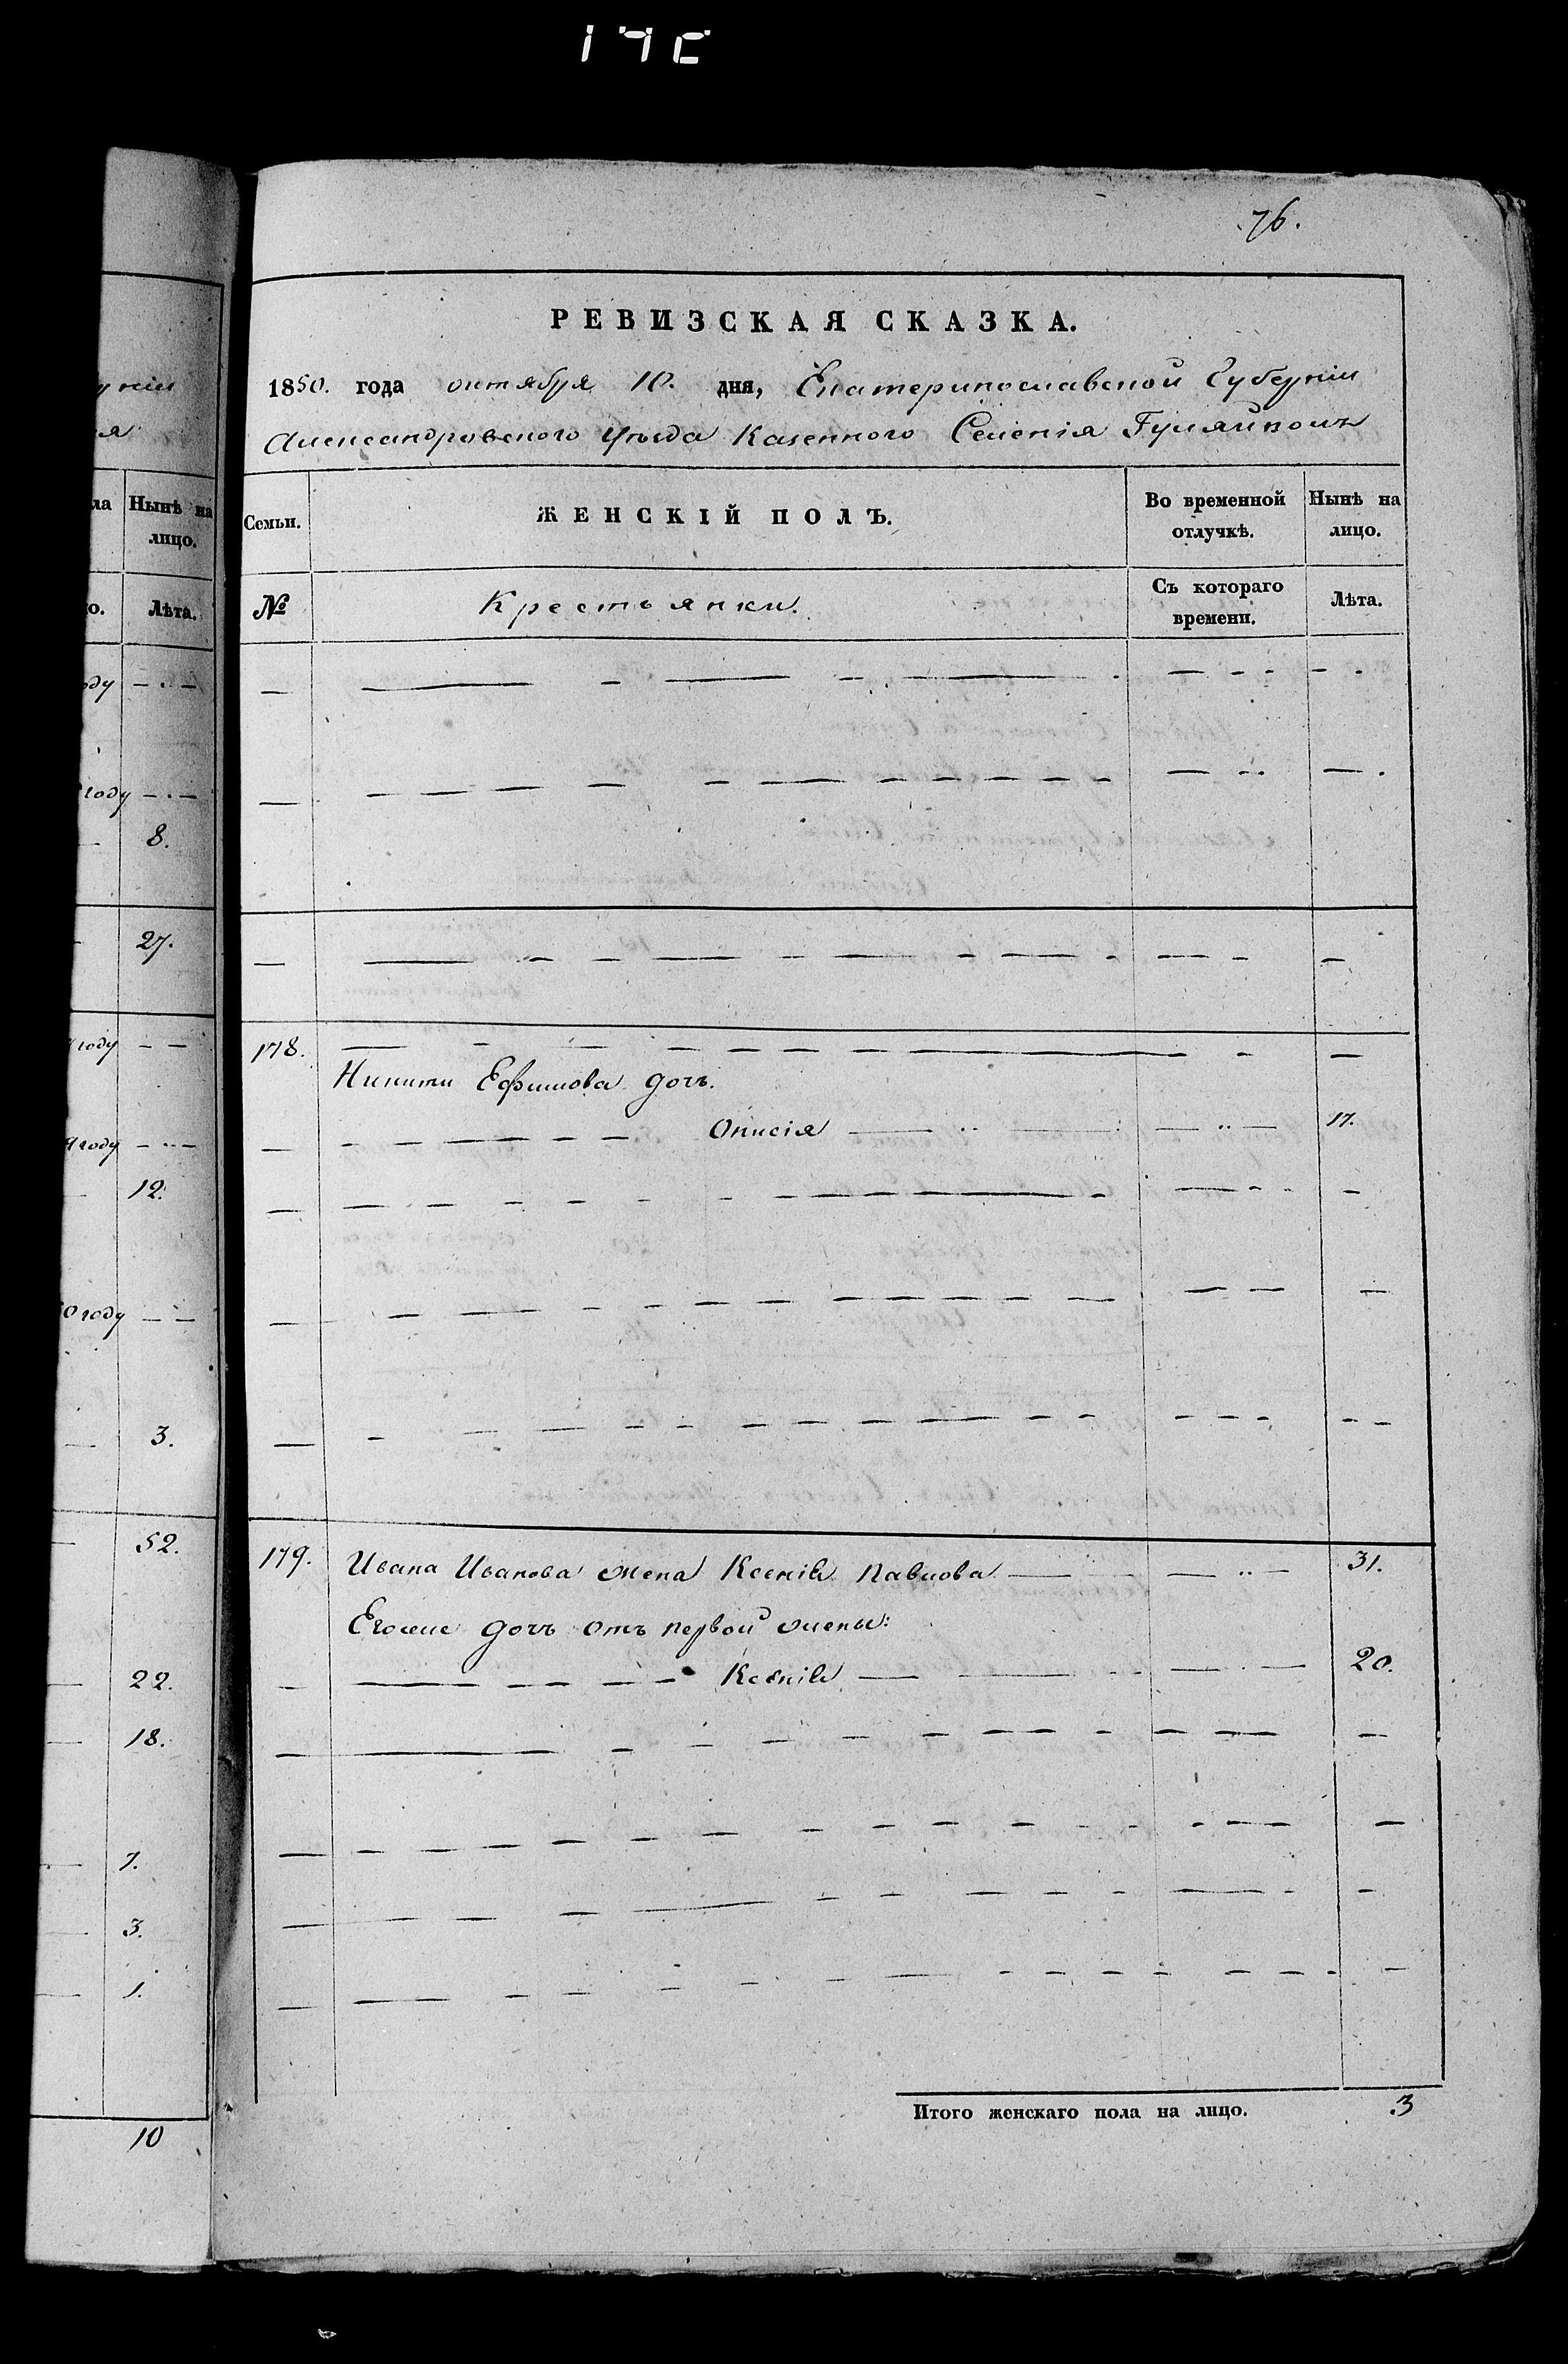 76.
РЕВИЗСКАЯ СКАЗКА.
1850. года октября 10. дня, Екатеринославской Губерніи
Александровского Уѣзда Казенного Селенія Гуляйполь
Семьи.
ЖЕНСКІЙ ПОЛЪ.
Во временной отлучкѣ.
Нынѣ на лицо.
№
Крестьянки.
Съ котораго времени.
Лѣта.
178.
Никиты Ефимова дочь.
17.
179. Ивана Иванова жена Ксенія Павлова 31.
Егоже дочь отъ первой жены:
Ксенія 20.
Итого женскаго пола на лицо. 3
Нынѣ на лицо.
Лѣта.
году
8.
27.
году
году
12.
году
3.
52.
22.
18.
7.
3.
1.
10